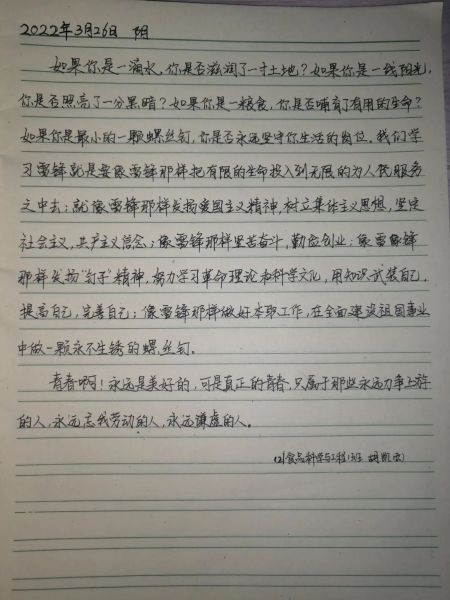 2022年3月26日 阴
如果你是一滴水，你是否滋润了一寸土地？如果你是一线阳光，
你是否照亮了一分黑暗？如果你是一粮食，你是否哺育了有用的生命？
如果你是最小的一颗螺丝钉，你是否永远坚守你生活的岗位。我们学
习雷锋就是要像雷锋那样把有限的生命投入到无限的为人民服务
之中去；就像雷锋那样发扬爱国主义精神，树立集体主义思想，坚定
社会主义，共产主义信念；像雷锋那样坚苦奋斗，勤俭创业；像雷锋
那样发扬"钉子"精神，努力学习革命理论和科学文化，用知识武装自己，
提高自己，完善自己；像雷锋那样做好本职工作，在全面建设祖国事业
中做一颗永不生锈的螺丝钉。
青春啊！永远是美好的，可是真正的青春，只属于那些永远力争上游
的人，永远忘我劳动的人，永远谦虚的人。
食品科学与工程 班 胡凯